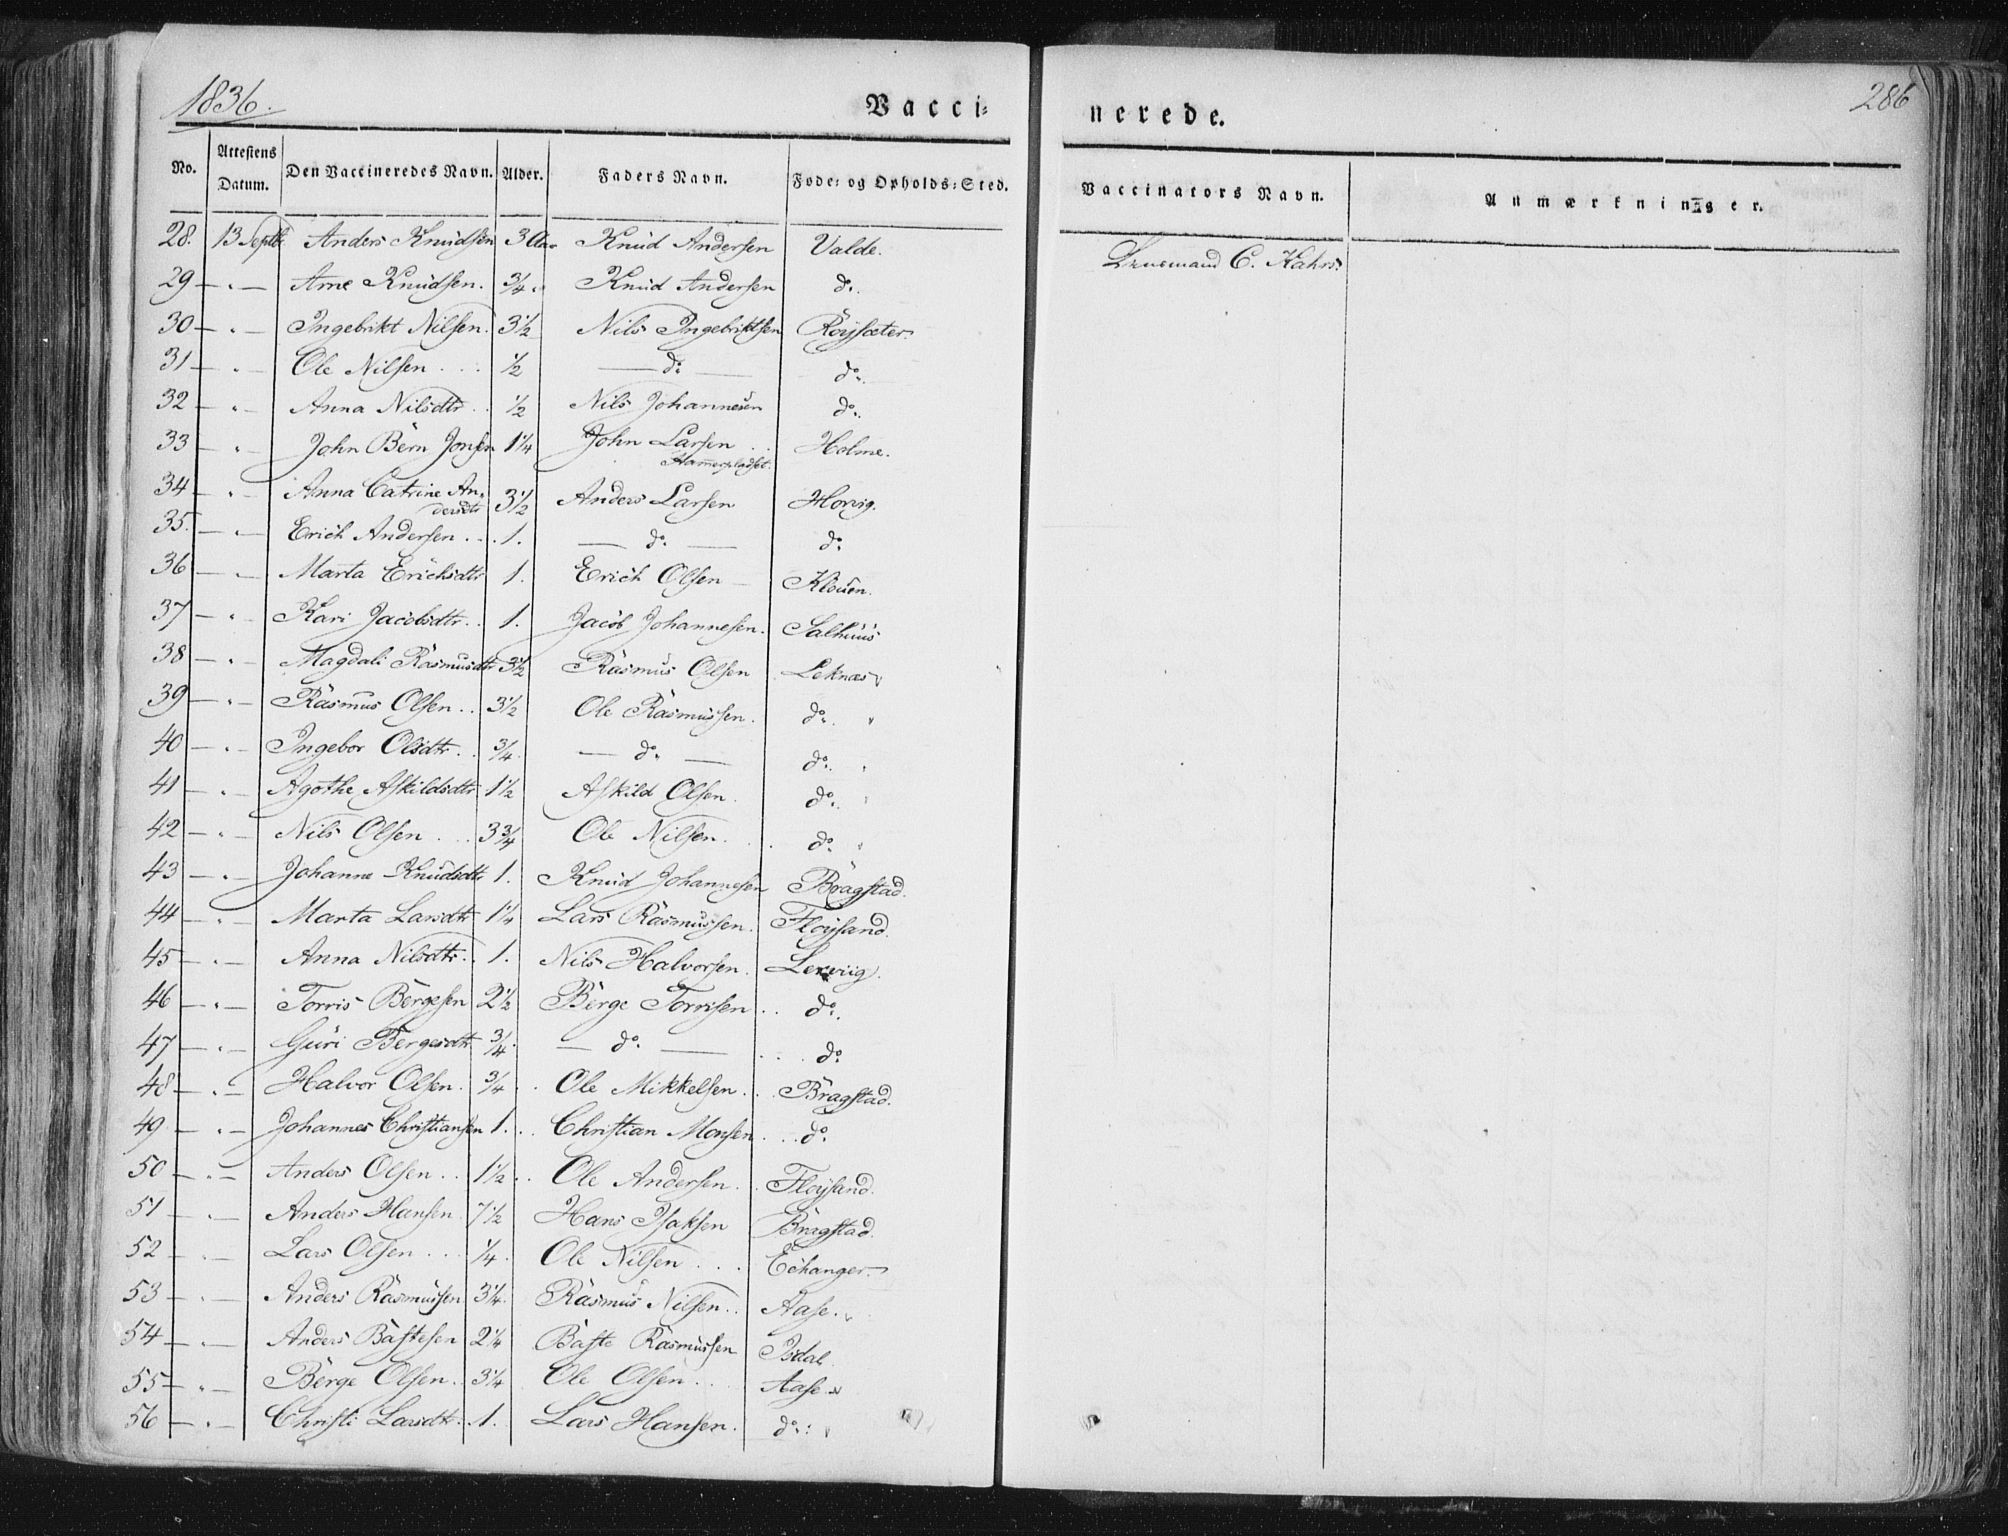 1836.
Vacci=
nerede.
286
No. Attestens Datum. Den Vaccineredes Navn. Alder. Faders Navn. Føde= og Opholds=Sted.
Vaccinators Navn. Anmærkninger.
28. 13 Septb Anders Knudsen 3 Aar Knud Andersen Valde. C. Kahrs.
29 — " — Arne Knudsen. 3/4 " Knud Andersen do.
30 — " — Ingebrikt Nilsen. 3 1/2 Nils Ingebriktsen Röysæter.
31 — " — Ole Nilsen . . . 1/2 — do — do.
32 — " — Anna Nilsdtr . 1/2 Nils Johannesen do.
33 — " John Bern Jonsen 1 1/4 John Larsen . . Holme.
Hammerpladset.
34 — " — Anna Catrine An=
dersdtr 3 1/2 Anders Larsen Horvig.
35. — " — Erich Andersen . . . 1. — do. — do.
36 — " — Marta Erichsdtr 1. Erich Olsen — Klouen.
37 — " — Kari Jacobsdtr. . 1. Jacob Johannesen. Salhuus
38 — " — Magdali Rasmusdtr 3 1/2 Rasmus Olsen Leknæs
39 — " — Rasmus Olsen . . 3 1/2 Ole Rasmussen. do. "
40 — " — Ingebor Olsdtr . . 3/4 — do. — do. "
41 — " — Agothe Askildsdtr 1 1/2 Askild Olsen. do. "
42 — " — Nils Olsen . . . 3 3/4 Ole Nilsen. . . do. "
43 — " — Johanne Knudsdtr 1. Knud Johannesen Bragstad.
44 — " — Marta Larsdtr 1 1/4 Lars Rasmussen. Flöysand.
45 — " — Anna Nilsdtr. . 1. Nils Halvorsen. Lervig.
46 — " — Torris Börgesen 2 1/2 Börge Torrisen . . do.
47 — " — Guri Börgesdtr 3/4. — do. — . . . do
48 — " — Halvor Olsen. 3/4 . Ole Mikkelsen. . . Bragstad.
49 — " — Johannes Christiansen 1. . Christian Monsen . . . do.
50 — " — Anders Olsen . . 1 1/2 . Ole Andersen . . Flöysand.
51 — " — Anders Hansen 7 1/2 Hans Isaksen Bragstad.
52 — " — Lars Olsen . . . 1/4. Ole Nilsen . . . Echanger.
53 — " — Anders Rasmussen 3 1/4. Rasmus Nilsen . . Aase. "
54 — " — Anders Bastesen 2 1/4 Baste Rasmussen Isdal
55 — " — Börge Olsen . 3 1/4 Ole Olsen . . Aase "
56 — " — Christi Larsdtr. 1. Lars Hansen. do. "